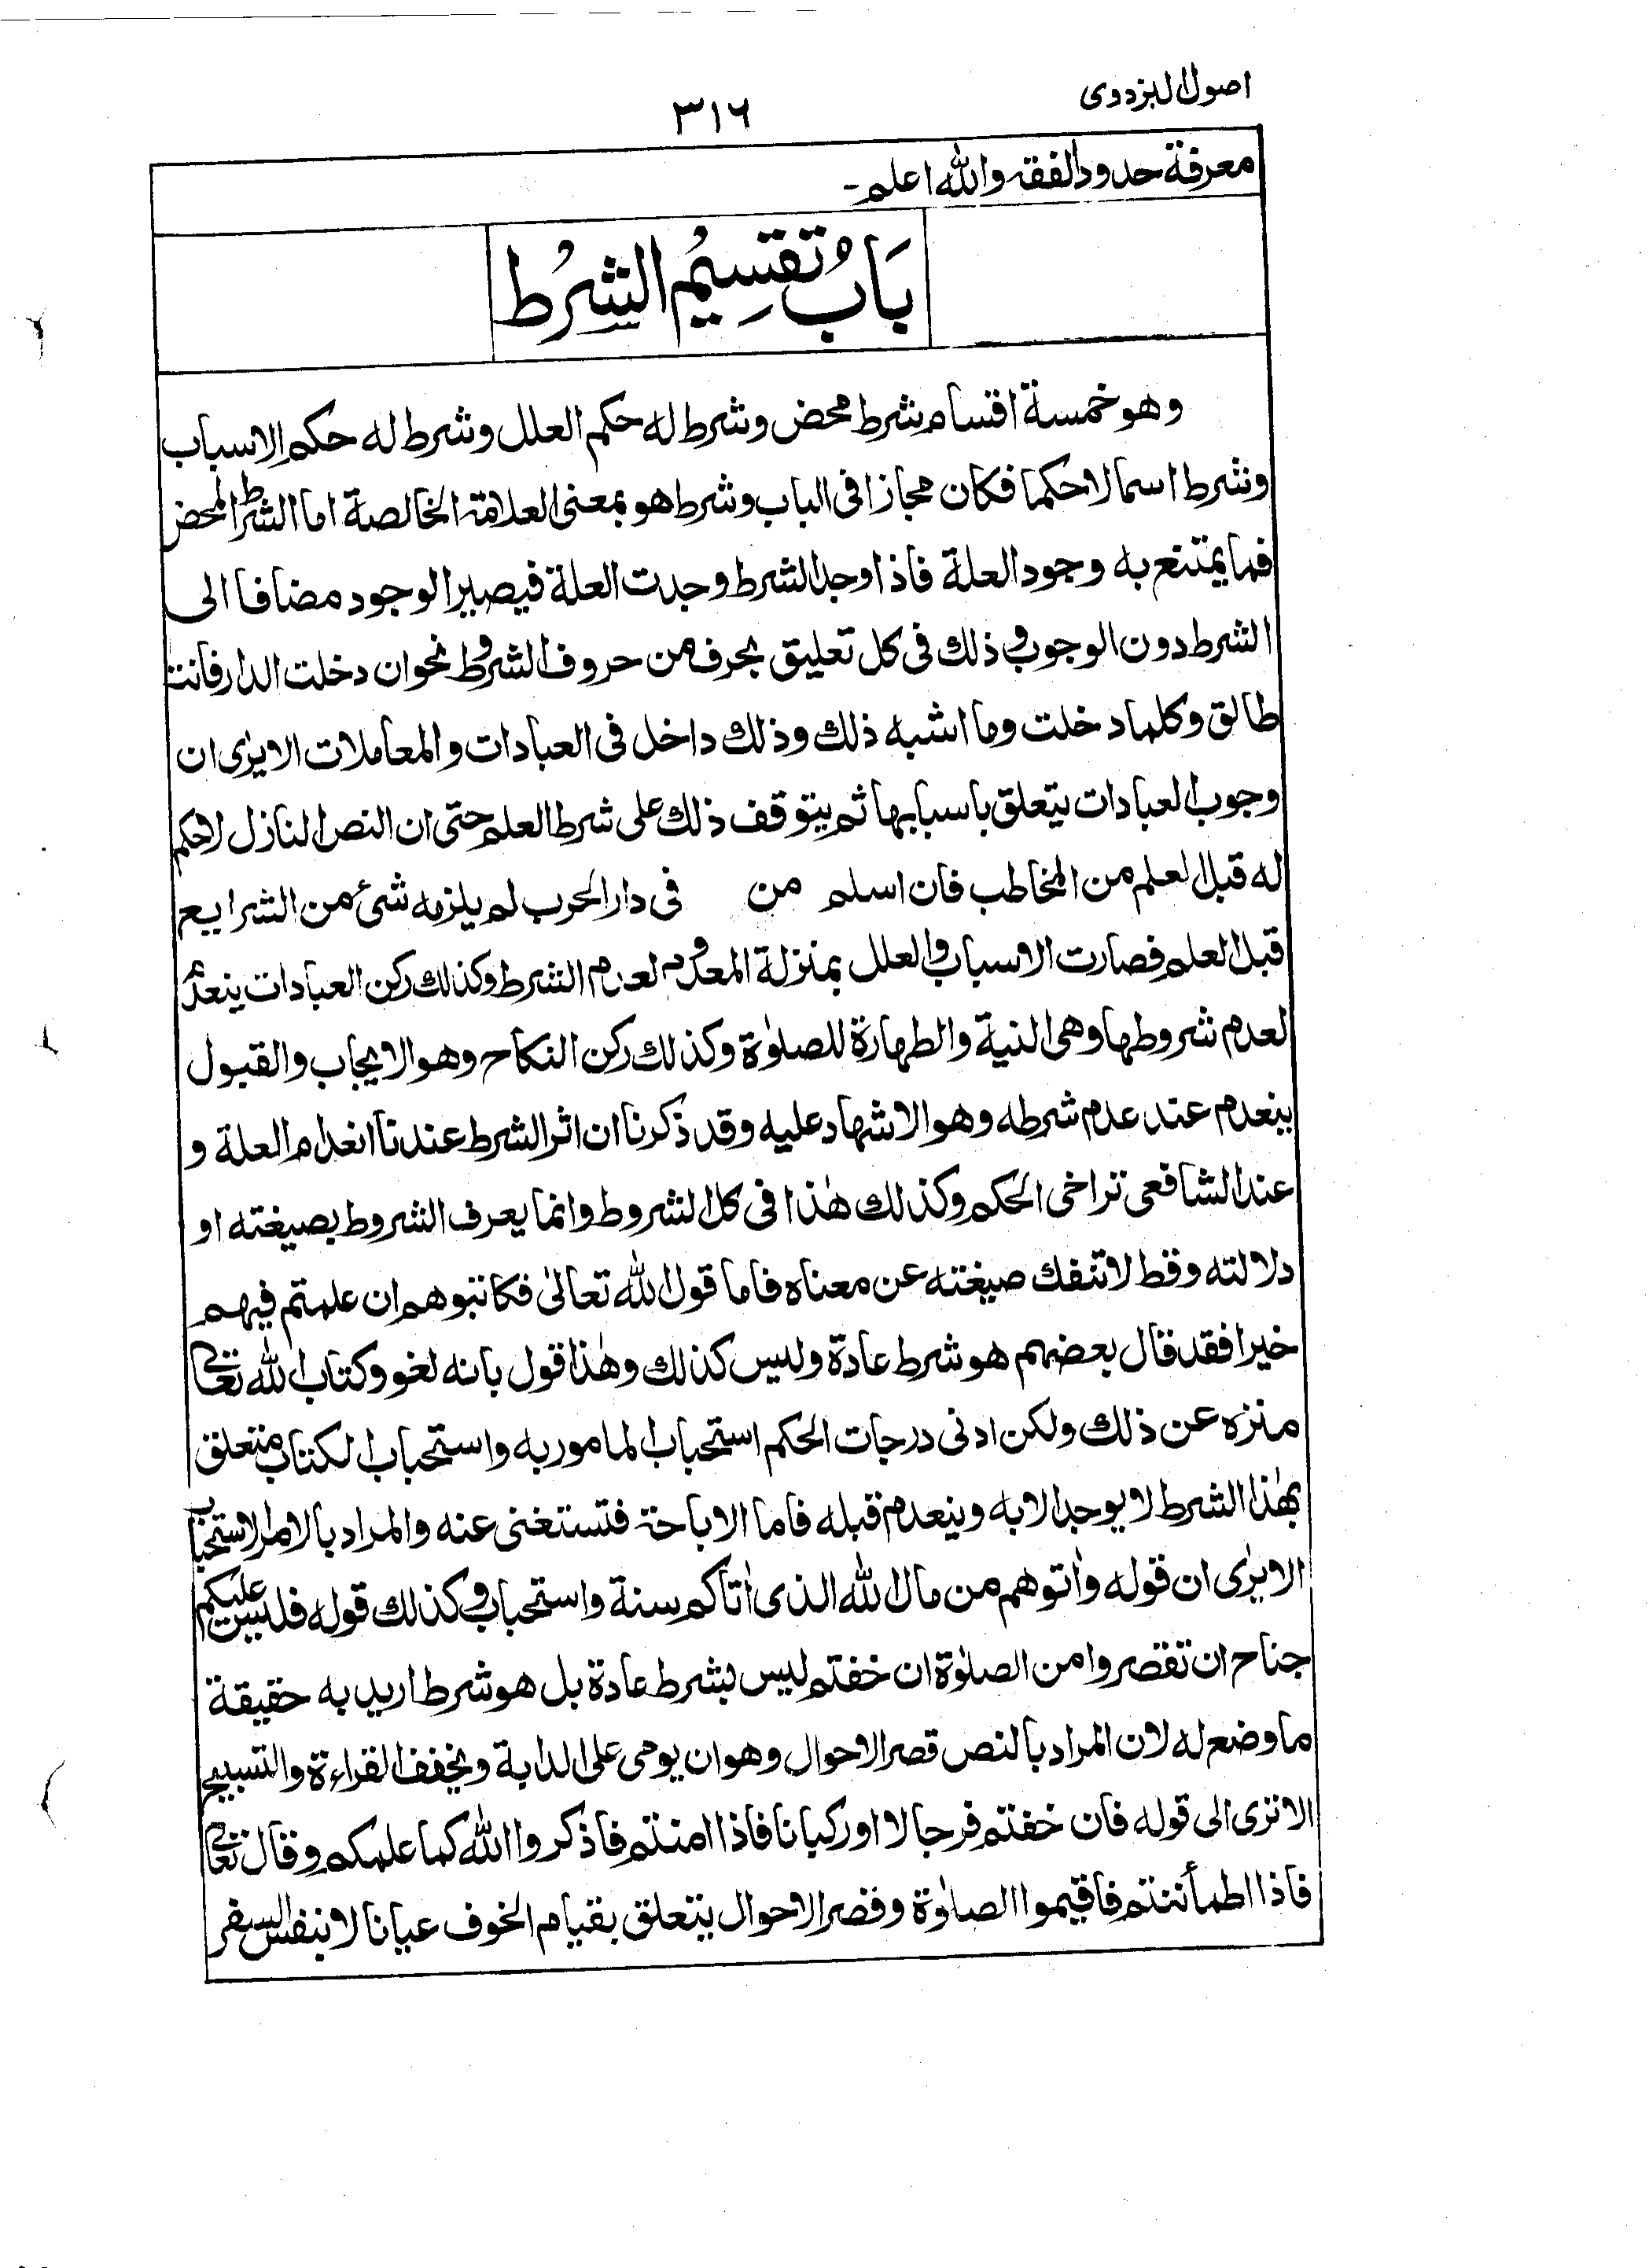 اصول البزدوی
۳۱۶
معرفة حدود الفقه والله اعلم۔
بَابُ تقسِيمُ الشرُط
وهو خمسة اقسام شرط محض وشرط له حكم العلل وشرط له حكم الاسباب
وشرط اسما لا حكما فكان مجازا فى الباب وشرط هو بمعنى العلامة الخالصة اما الشرط المحض
فما يمتنع به وجود العلة فاذا وجد الشرط وجدت العلة فيصير الوجود مضافا الى
الشرط دون الوجوب وذلك فى كل تعليق بحرف من حروف الشروط نحو ان دخلت الدار فانت
طالق وكلما دخلت وما اشبه ذلك وذلك داخل فى العبادات والمعاملات الا يرٰى ان
وجوب العبادات يتعلق باسبابها ثم يتوقف ذلك على شرط العلم حتى ان النص النازل لا حكم
له قبل العلم من المخاطب فان اسلم من فى دار الحرب لم يلزمه شئ من الشرايع
قبل العلم فصارت الاسباب والعلل بمنزلة المعدوم لعدم الشرط وكذلك ركن العبادات ينعدم
لعدم شروطها وهى النية والطهارة للصلوٰة وكذلك ركن النكاح وهو الايجاب والقبول
ينعدم عند عدم شرطه وهو الاشهاد عليه وقد ذكرنا ان اثر الشرط عندنا انعدام العلة و
عند الشافعى تراخى الحكم وكذلك هٰذا فى كل الشروط وانما يعرف الشروط بصيغته او
دلالته وقط لا تنفك صيغته عن معناه فاما قول الله تعالىٰ فكاتبوهم ان علمتم فيهم
خيرا فقد قال بعضهم هو شرط عادة وليس كذلك وهٰذا قول بانه لغو وكتاب الله تعالىٰ
منزه عن ذلك ولكن ادنى درجات الحكم استحباب المامور به واستحباب الكتاب متعلق
بهٰذا الشرط لا يوجد الا به وينعدم قبله فاما الاباحة فتستغنى عنه والمراد بالامر الاستحباب
الا يرٰى ان قوله وأتوهم من مال الله الذى أتاكم سنة واستحباب وكذلك قوله فليس عليكم
جناح ان تقصروا من الصلوٰة ان خفتم ليس بشرط عادة بل هو شرط اريد به حقيقة
ما وضع له لان المراد بالنص قصر الاحوال وهو ان يومى على الدابة ويخفف القراءة والتسبيح
الا ترى الى قوله فان خفتم فرجالا او ركبانا فاذا امنتم فاذكروا الله كما علمكم وقال تعالىٰ
فاذا اطمأننتم فاقيموا الصلوٰة وقصر الاحوال يتعلق بقيام الخوف عيانا لا بنفس السفر